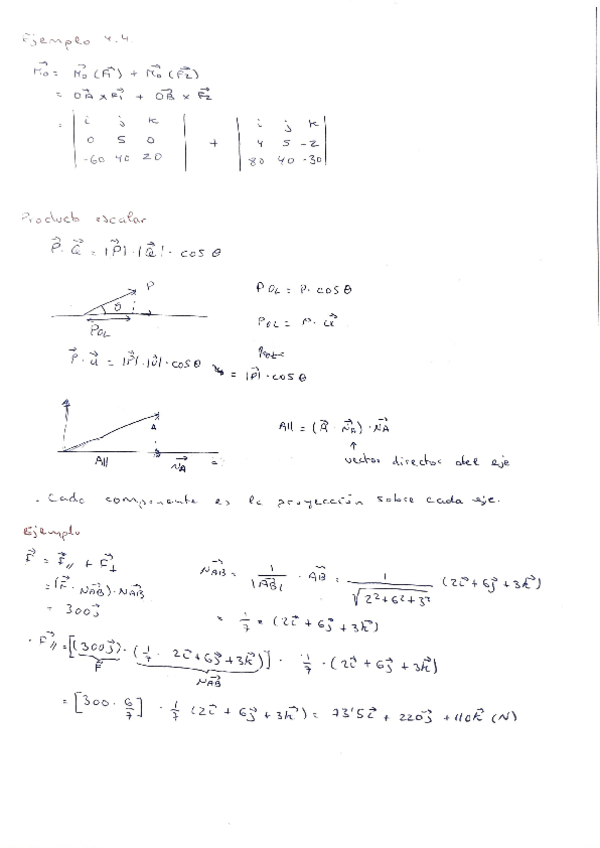 Ejemplo 4.4
M⃗o = M⃗o (F⃗1) + M⃗o (F⃗2)
= O⃗A × F⃗1 + O⃗B × F⃗2
= | i j k | + | i j k |
| 0 5 0 | | 4 5 -2 |
| -60 40 20 | | 80 40 -30 |
Producto escalar
P⃗ · Q⃗ = |P⃗| · |Q⃗| · cos θ
P
θ
POL
POL = P · cos θ
POL = P · u⃗
P⃗ · u⃗ = |P⃗| · |u⃗| · cos θ = |P| · cos θ
A
A||
N⃗A
A|| = (A⃗ · N⃗A) · N⃗A
↑
vector director del eje
. Cada componente es la proyección sobre cada eje.
Ejemplo
F⃗ = F⃗∥ + F⃗⊥
= (F⃗ · N⃗AB) · N⃗AB
= 300j⃗
N⃗AB = 1/|AB| · A⃗B = 1/√(2²+6²+3²) (2i⃗ + 6j⃗ + 3k⃗)
= 1/7 × (2i⃗ + 6j⃗ + 3k⃗)
· F⃗∥ = [(300j⃗) · (1/7 · 2i⃗ + 6j⃗ + 3k⃗)] · 1/7 · (2i⃗ + 6j⃗ + 3k⃗)
F⃗
N⃗AB
= [300 · 6/7] · 1/7 (2i⃗ + 6j⃗ + 3k⃗) = 73'5i⃗ + 220j⃗ + 110k⃗ (N)